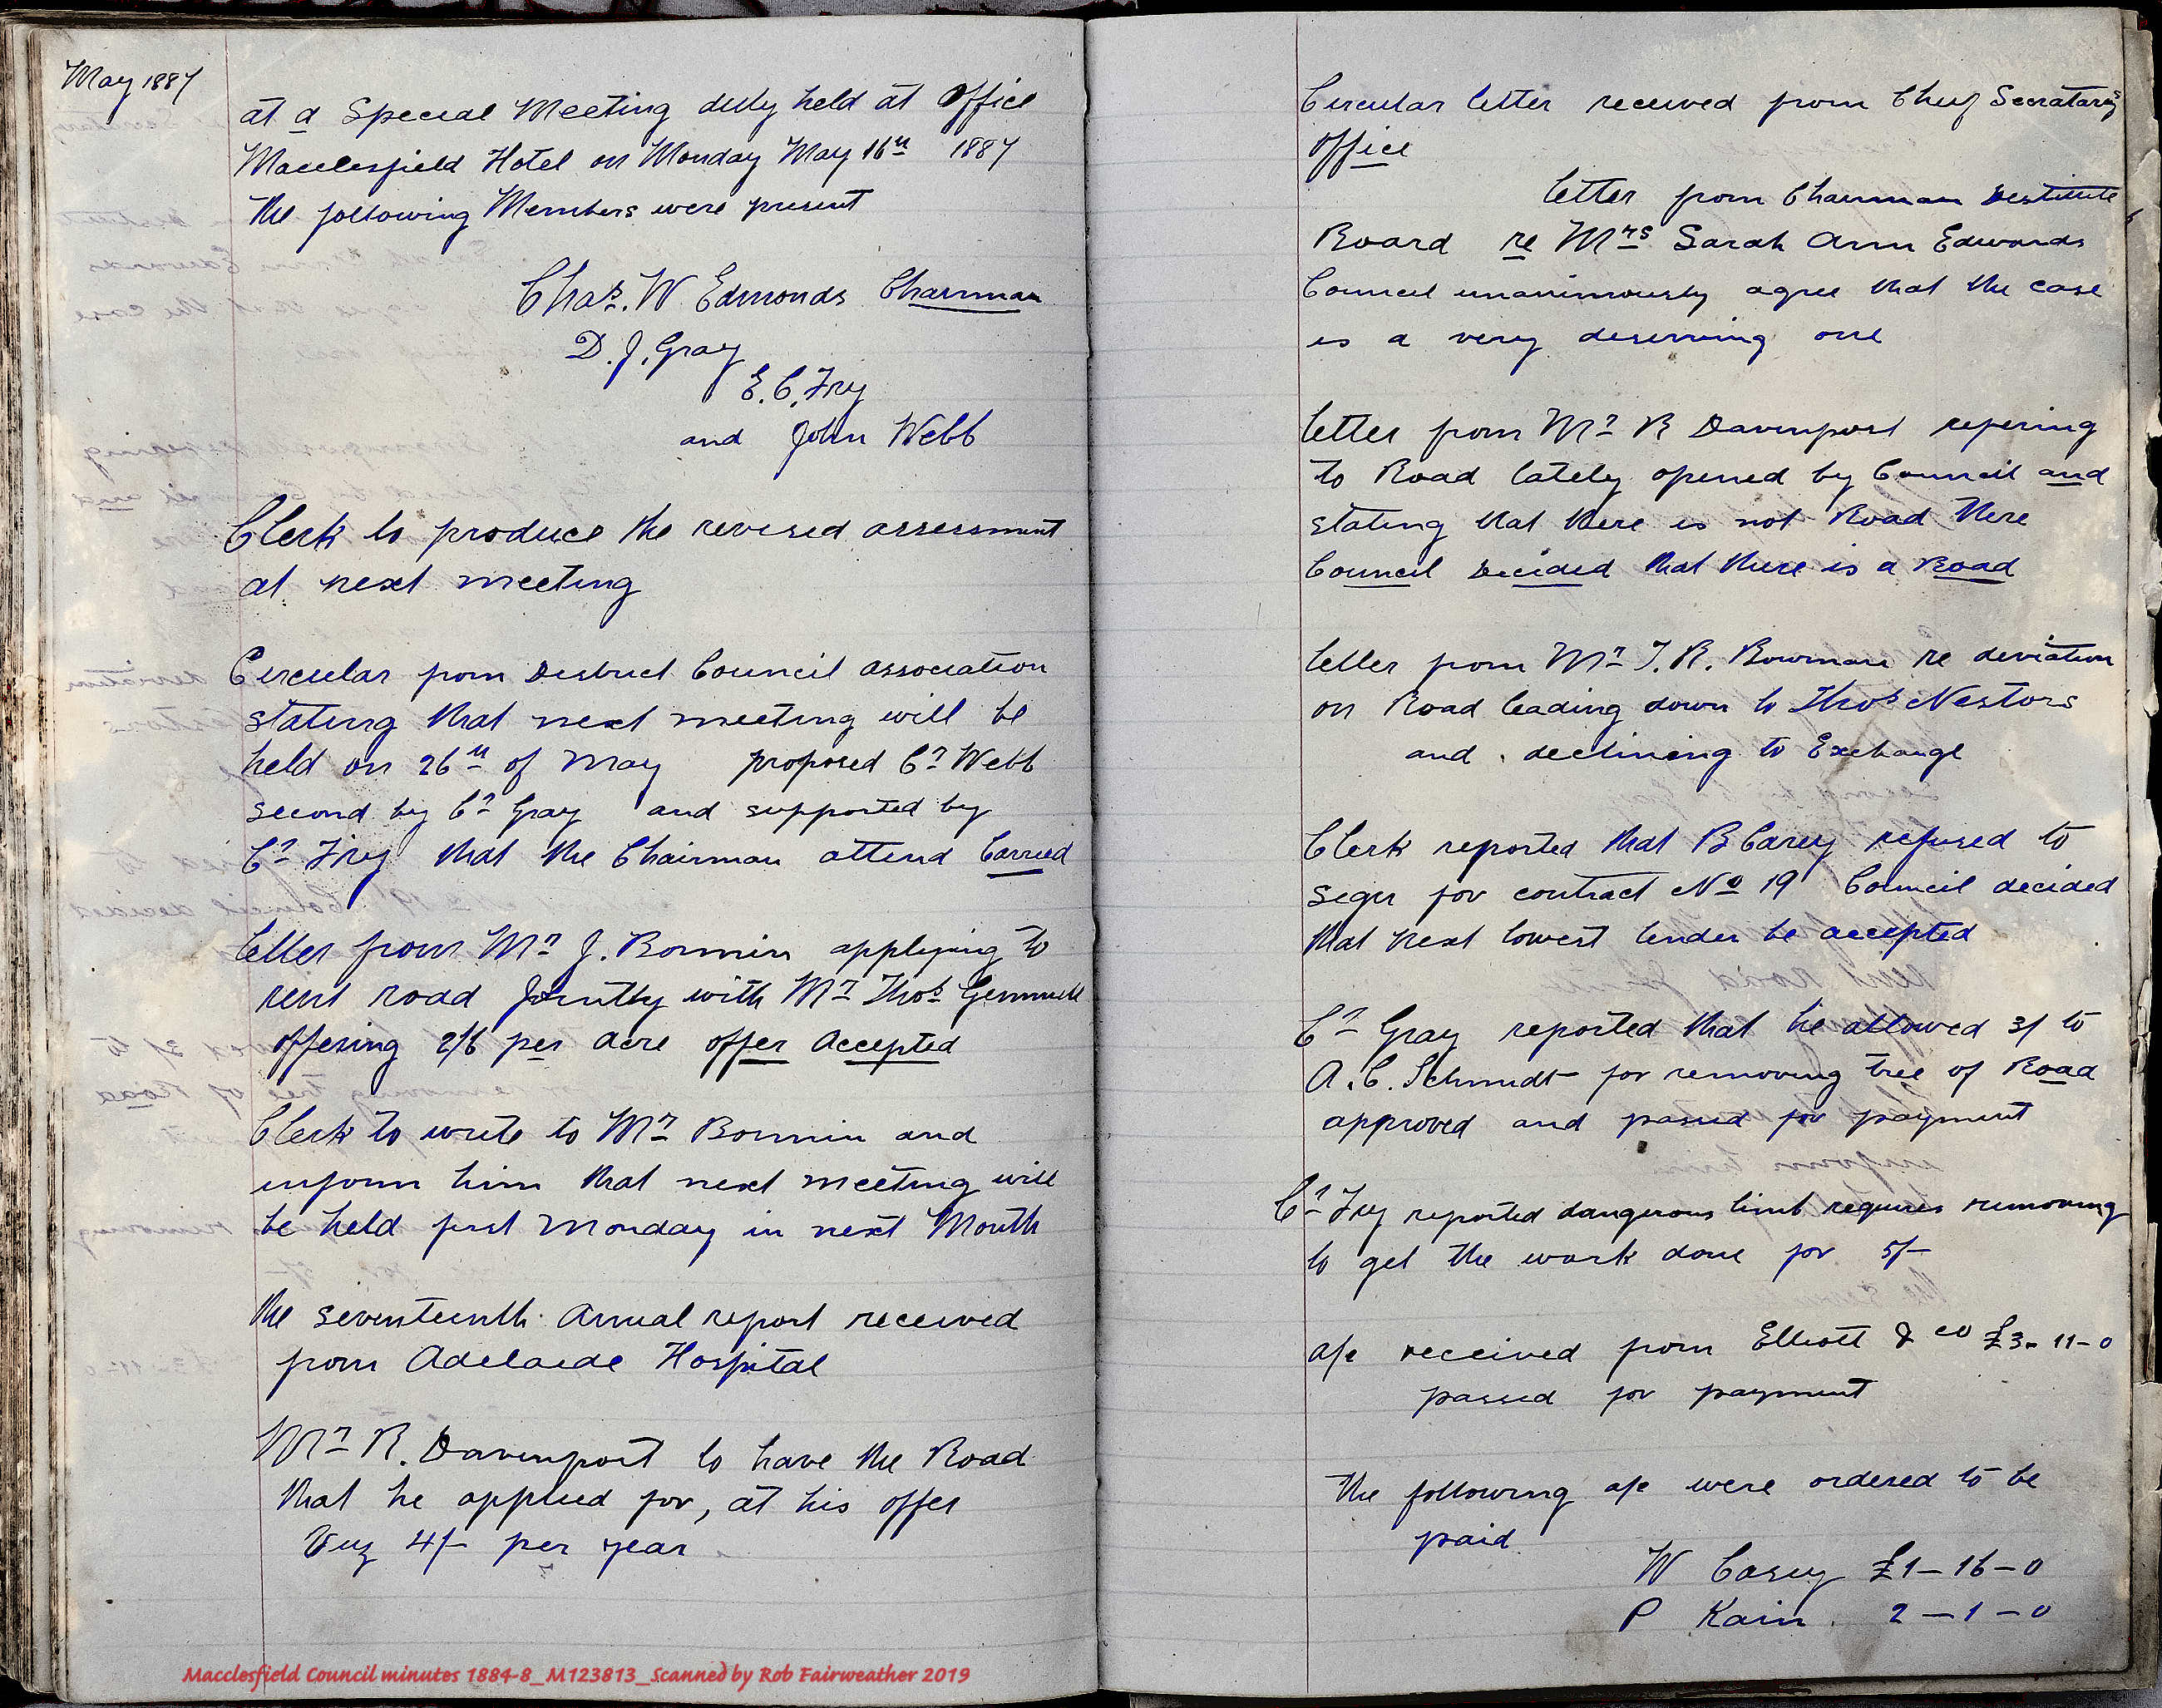 May 1887
at a Special Meeting duly held at Office
Macclesfield Hotel on Monday May 16th 1887
the following Members were present
Chas. W Edmonds Chairman
D. J. Gray
E. C. Fry
and John Webb
Clerk to produce the revised assessment
at next meeting
Circular from District Council association
stating that next meeting will be
held on 26th of May proposed Cr Webb
second by Cr Gray and supported by
Cr Fry that the Chairman attend Carried
letter from Mr J. Bonnin applying to
rent road Jointly with Mr Thos Gemmell
offering 2/6 per Acre offer Accepted
Clerk to write to Mr Bonnin and
inform him that next meeting will
be held first Monday in next Month
the seventeenth Annual report received
from Adelaide Hospital
Mr R. Davenport to have the Road
that he applied for, at his offer
Viz 4/- per year
Circular letter received from Chief Secretarys
office
letter from Chairman Destitute
Board re Mrs Sarah Ann Edwards
Council unanimously agree that the case
is a very deserving one
letter from Mr R Davenport refering
to Road lately opened by Council and
stating that there is not Road there
Council Decided that there is a Road
letter from Mr T. R. Bowman re deviation
on Road leading down to Thos Nestors
and declining to Exchange
Clerk reported that B Carey refused to
sign for contract No 19 Council decided
that next lowest tender be accepted
Cr Gray reported that he allowed 3/ to
A. C. Schmidt for removing tree of Road
approved and passed for payment
Cr Fry reported dangerous limb requires removing
to get the work done for 5/-
a/c received from Elliott & co £3-11-0
passed for payment
the following a/c were ordered to be
paid
W Casey £1-16-0
P Kain. 2-1-0
Macclesfield Council minutes 1884-8_M123813_Scanned by Rob Fairweather 2019